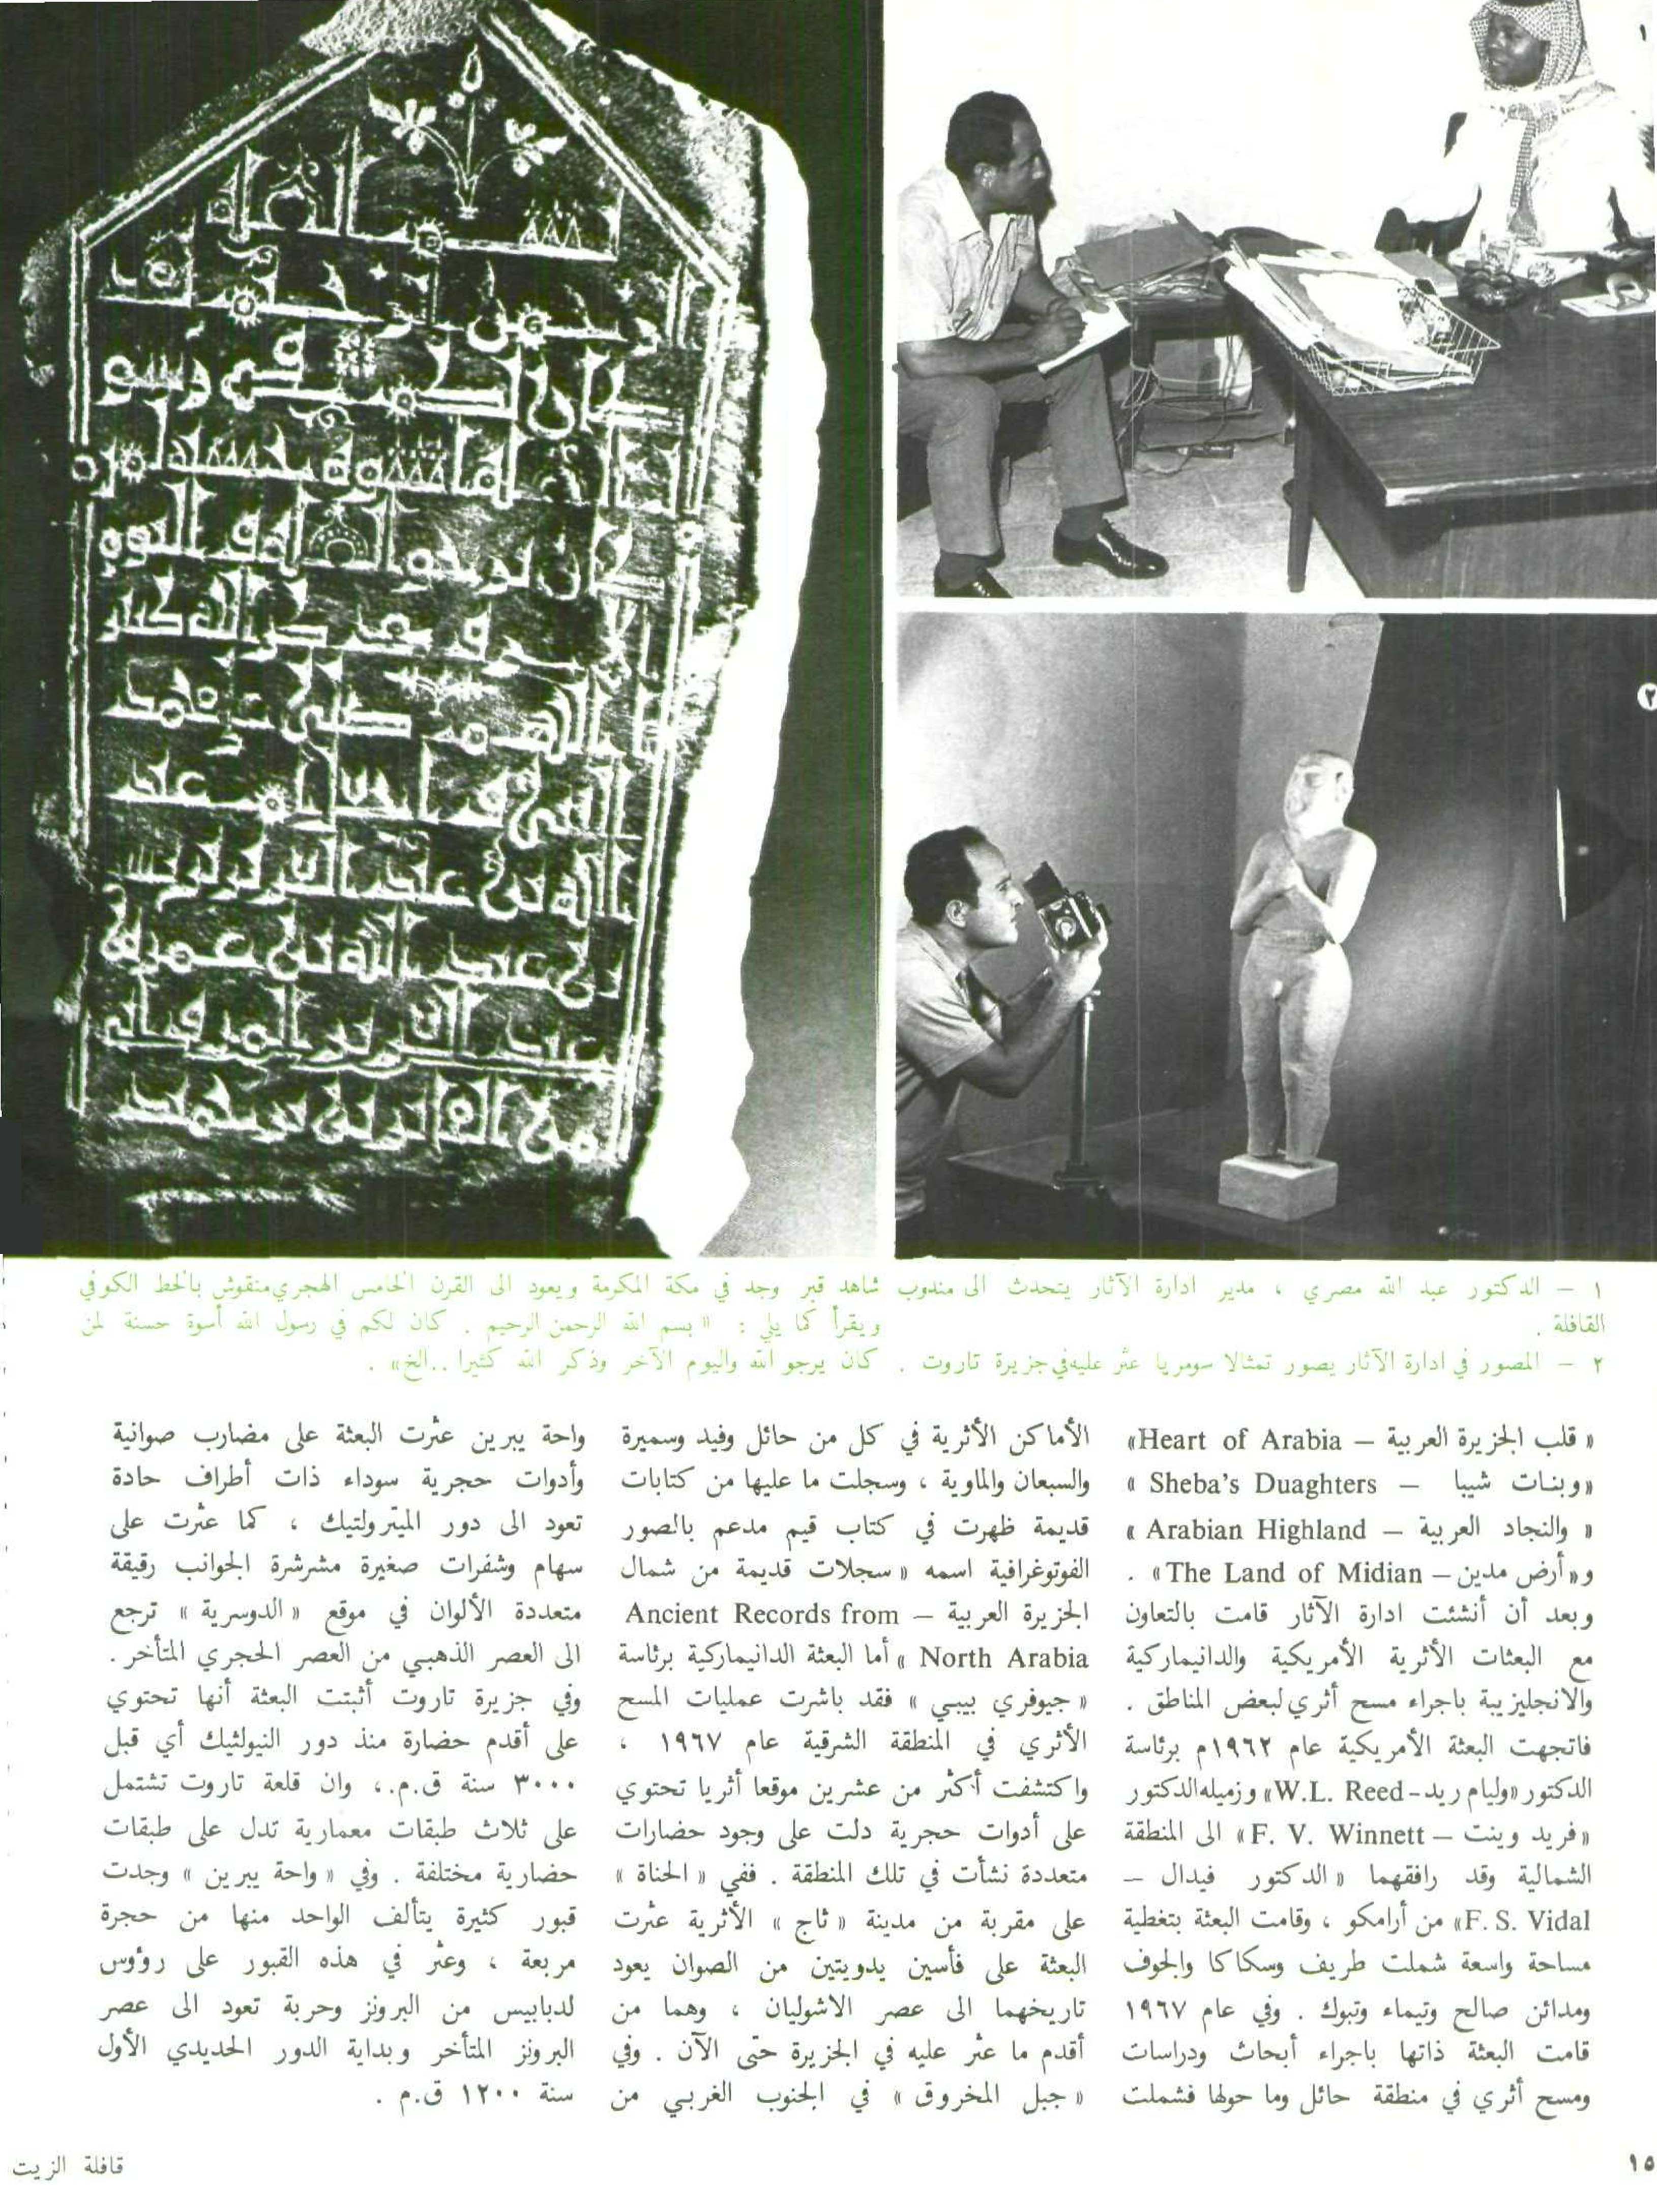 ١
٢
١ – الدكتور عبد الله مصري ، مدير ادارة الآثار يتحدث الى مندوب
القافلة .
٢ – المصور في ادارة الآثار يصور تمثالا سومريا عثر عليه في جزيرة تاروت .
شاهد قبر وجد في مكة المكرمة ويعود الى القرن الخامس الهجري منقوش بالخط الكوفي
ويقرأ كما يلي : « بسم الله الرحمن الرحيم . كان لكم في رسول الله أسوة حسنة لمن
كان يرجو الله واليوم الآخر وذكر الله كثيرا ..الخ» .
« قلب الجزيرة العربية – Heart of Arabia»
«وبنات شيبا – Sheba's Duaghters »
« والنجاد العربية – Arabian Highland »
و«أرض مدين – The Land of Midian» .
وبعد أن أنشئت ادارة الآثار قامت بالتعاون
مع البعثات الأثرية الأمريكية والدانيماركية
والانجليزية باجراء مسح أثري لبعض المناطق .
فاتجهت البعثة الأمريكية عام ١٩٦٢م برئاسة
الدكتور «وليام ريد - W.L. Reed» وزميله الدكتور
«فريد وينت – F. V. Winnett» الى المنطقة
الشمالية وقد رافقهما « الدكتور فيدال –
F. S. Vidal» من أرامكو ، وقامت البعثة بتغطية
مساحة واسعة شملت طريف وسكاكا والجوف
ومدائن صالح وتيماء وتبوك . وفي عام ١٩٦٧
قامت البعثة ذاتها باجراء أبحاث ودراسات
ومسح أثري في منطقة حائل وما حولها فشملت
الأماكن الأثرية في كل من حائل وفيد وسميرة
والسبعان والماوية ، وسجلت ما عليها من كتابات
قديمة ظهرت في كتاب قيم مدعم بالصور
الفوتوغرافية اسمه « سجلات قديمة من شمال
الجزيرة العربية – Ancient Records from
North Arabia » أما البعثة الدانيماركية برئاسة
« جيوفري بيبي » فقد باشرت عمليات المسح
الأثري في المنطقة الشرقية عام ١٩٦٧ ،
واكتشفت أكثر من عشرين موقعا أثريا تحتوي
على أدوات حجرية دلت على وجود حضارات
متعددة نشأت في تلك المنطقة . ففي « الحناة »
على مقربة من مدينة « ثاج » الأثرية عثرت
البعثة على فأسين يدويتين من الصوان يعود
تاريخهما الى عصر الاشوليان ، وهما من
أقدم ما عثر عليه في الجزيرة حتى الآن . وفي
« جبل المخروق » في الجنوب الغربي من
واحة يبرين عثرت البعثة على مضارب صوانية
وأدوات حجرية سوداء ذات أطراف حادة
تعود الى دور الميترولتيك ، كما عثرت على
سهام وشفرات صغيرة مشرشرة الجوانب رقيقة
متعددة الألوان في موقع « الدوسرية » ترجع
الى العصر الذهبي من العصر الحجري المتأخر .
وفي جزيرة تاروت أثبتت البعثة أنها تحتوي
على أقدم حضارة منذ دور النيولثيك أي قبل
٣٠٠٠ سنة ق.م.، وان قلعة تاروت تشتمل
على ثلاث طبقات معمارية تدل على طبقات
حضارية مختلفة . وفي « واحة يبرين » وجدت
قبور كثيرة يتألف الواحد منها من حجرة
مربعة ، وعثر في هذه القبور على رؤوس
لدبابيس من البرونز وحربة تعود الى عصر
البرونز المتأخر وبداية الدور الحديدي الأول
سنة ١٢٠٠ ق.م .
١٥
قافلة الزيت